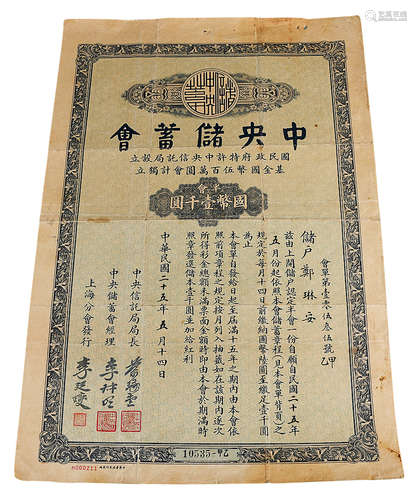 中央儲蓄會
國民政府特許中央信託局設立
基金國幣伍百萬圓會計獨立
半會
國幣壹千圓
會單第壹零伍叁伍號甲乙
儲戶鄭琳安
該由上開儲戶認定半會一份自願自民國二十五年
五月份起依照本會儲蓄章程(見本會單背頁)之
規定於每月十四日前繳納國幣陸圓至繳足壹千圓
為止
本會單自發給日起至屆滿十五年之期內由本會依
照前項章程之規定按月列入抽籤如在該期內逐次
所得彩金總額未滿票面金額時即由本會於期滿時
照章發還儲本壹千圓並加給紅利
中華民國二十五年五月十四日
中央信託局局長
中央儲蓄會經理
上海分會發行
10535-甲乙
M000211